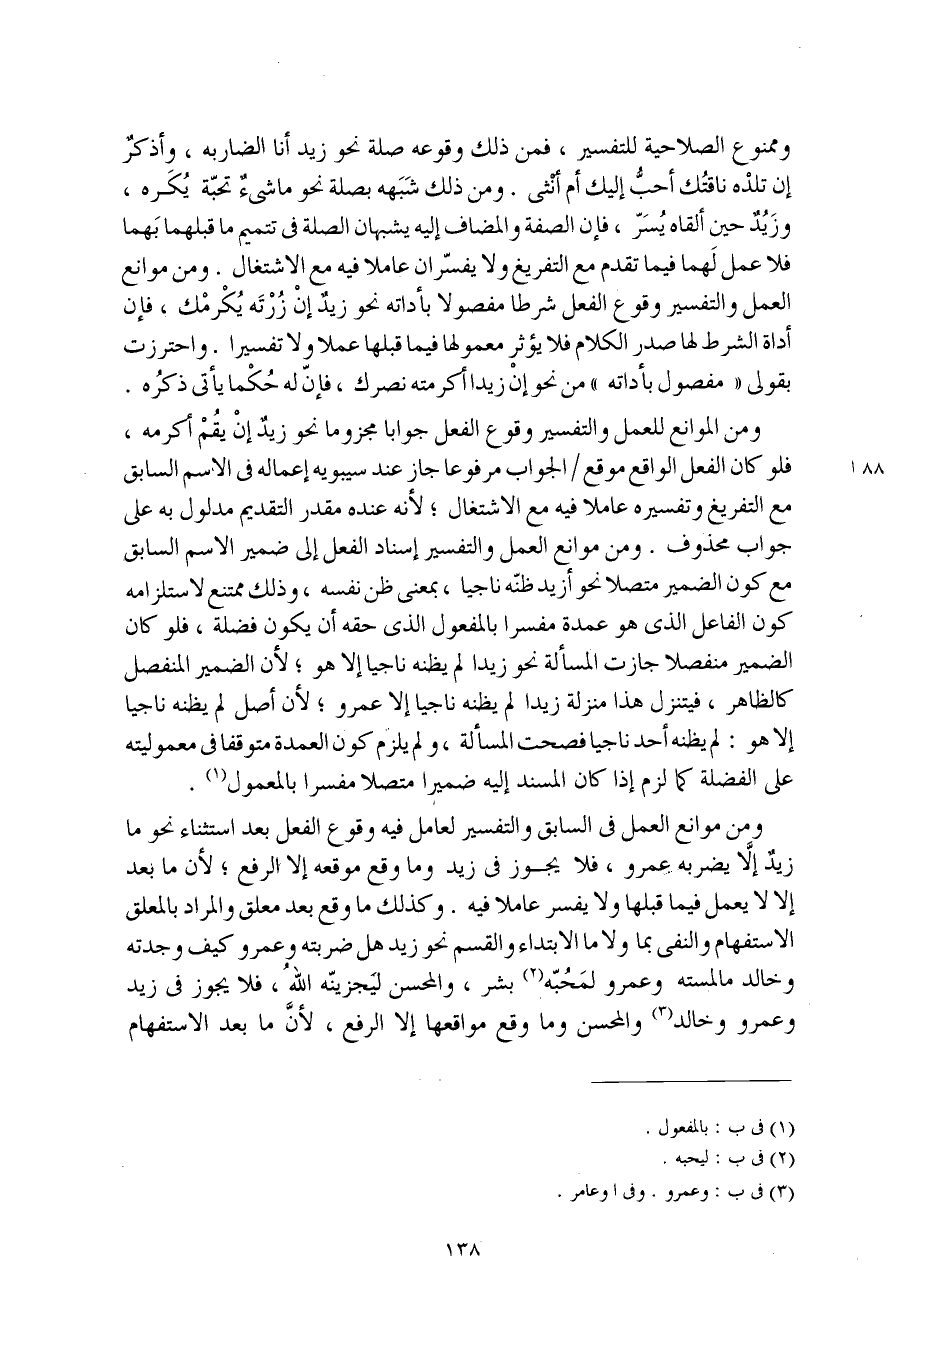 وممنوع الصلاحية للتفسير ، فمن ذلك وقوعه صلة نحو زيد أنا الضاربه ، وأذكرٌ
إن تلذه ناقتُك أحبُّ إليك أم أنْثى . ومن ذلك شَبَهه بصلة نحو ماشىءٌ تحبّة يُكَره ،
وزَيُدٌ حين ألقاه يُسَرّ ، فإن الصفة والمضاف إليه يشبهان الصلة فى تتميم ما قبلهما بَهما
فلا عمل لَهما فيما تقدم مع التفريغ ولا يفسّران عاملا فيه مع الاشتغال . ومن موانع
العمل والتفسير وقوع الفعل شرطا مفصولا بأداته نحو زيدٌ إنْ زُرْتَه يُكْرمْك ، فإن
أداة الشرط لها صدر الكلام فلا يؤثر معمولها فيما قبلها عملا ولا تفسيرا . واحترزت
بقولى « مفصول بأداته » من نحو إنْ زيدا أكرمته نصرك ، فإنّ له حُكْما يأتى ذكرُه .
ومن الموانع للعمل والتفسير وقوع الفعل جوابا مجزوما نحو زيدٌ إنْ يقُمْ أكرمه ،
فلو كان الفعل الواقع موقع / الجواب مرفوعا جاز عند سيبويه إعماله فى الاسم السابق
٨٨ ا
مع التفريغ وتفسيره عاملا فيه مع الاشتغال ؛ لأنه عنده مقدر التقديم مدلول به على
جواب محذوف . ومن موانع العمل والتفسير إسناد الفعل إلى ضمير الاسم السابق
مع كون الضمير متصلا نحو أزيد ظنّه ناجيا ، بمعنى ظن نفسه ، وذلك ممتنع لاستلزامه
كون الفاعل الذى هو عمدة مفسرا بالمفعول الذى حقه أن يكون فضلة ، فلو كان
الضمير منفصلا جازت المسألة نحو زيدا لم يظنه ناجيا إلا هو ؛ لأن الضمير المنفصل
كالظاهر ، فيتنزل هذا منزلة زيدا لم يظنه ناجيا إلا عمرو ؛ لأن أصل لم يظنه ناجيا
إلا هو : لم يظنه أحد ناجيا فصحت المسألة ، ولم يلزم كون العمدة متوقفا فى معموليته
على الفضلة كما لزم إذا كان المسند إليه ضميرا متصلا مفسرا بالمعمول(١) .
ومن موانع العمل فى السابق والتفسير لعامل فيه وقوع الفعل بعد استثناء نحو ما
زيدٌ إلَّا يضربه عمرو ، فلا يجوز فى زيد وما وقع موقعه إلا الرفع ؛ لأن ما بعد
إلا لا يعمل فيما قبلها ولا يفسر عاملا فيه . وكذلك ما وقع بعد معلق والمراد بالمعلق
الاستفهام والنفى بما ولا ما الابتداء والقسم نحو زيد هل ضربته وعمرو كيف وجدته
وخالد مالمسته وعمرو لمَحُبّه(٢) بشر ، والمحسن ليَجزينّه اللهُ ، فلا يجوز فى زيد
وعمرو وخالد(٣) والمحسن وما وقع مواقعها إلا الرفع ، لأنَّ ما بعد الاستفهام
(١) فى ب : بالمفعول .
(٢) فى ب : ليحبه .
(٣) فى ب : وعمرو . وفى ا وعامر .
١٣٨